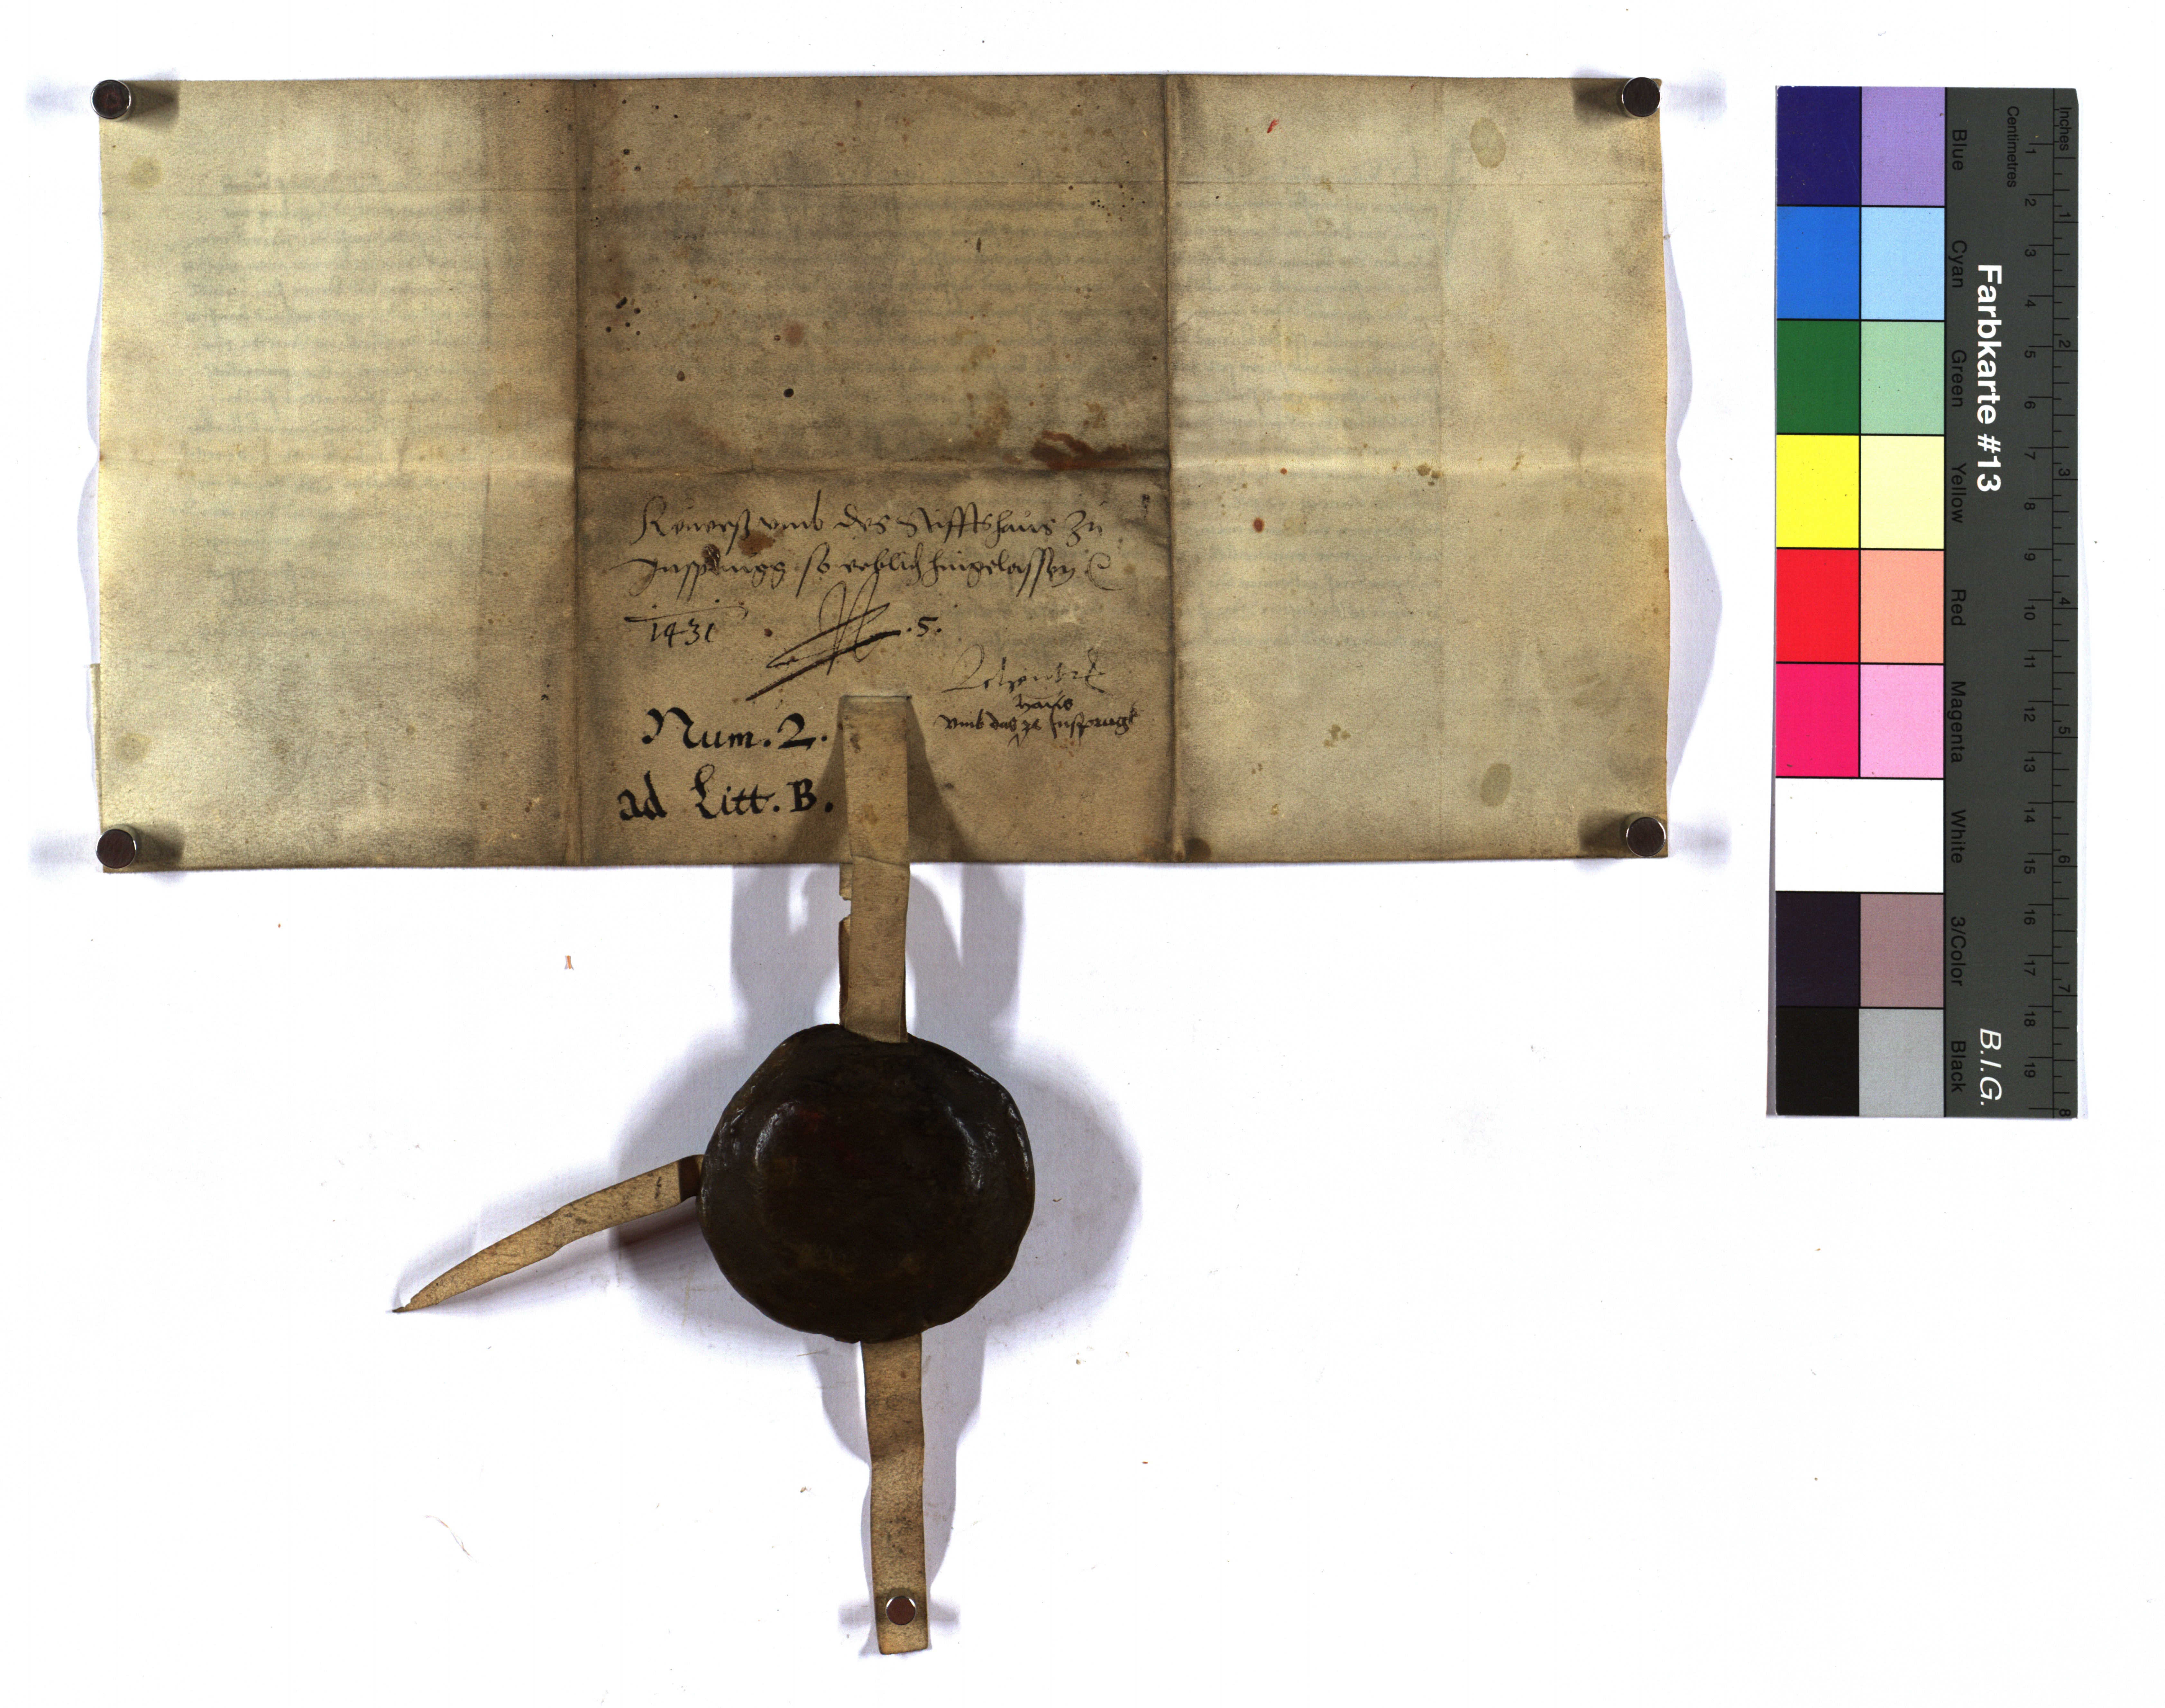 Reuerß vmb des Stiffts haus zu
Insprugg so erblich hingelassen
1431
.5.
vmb das haus ze Insprugk
Num. 2.
ad Litt. B.
Farbkarte #13
B.I.G.
Centimetres
Inches
1 2 3 4 5 6 7 8 9 10 11 12 13 14 15 16 17 18 19
1 2 3 4 5 6 7 8
Blue
Cyan
Green
Yellow
Red
Magenta
White
3/Color
Black